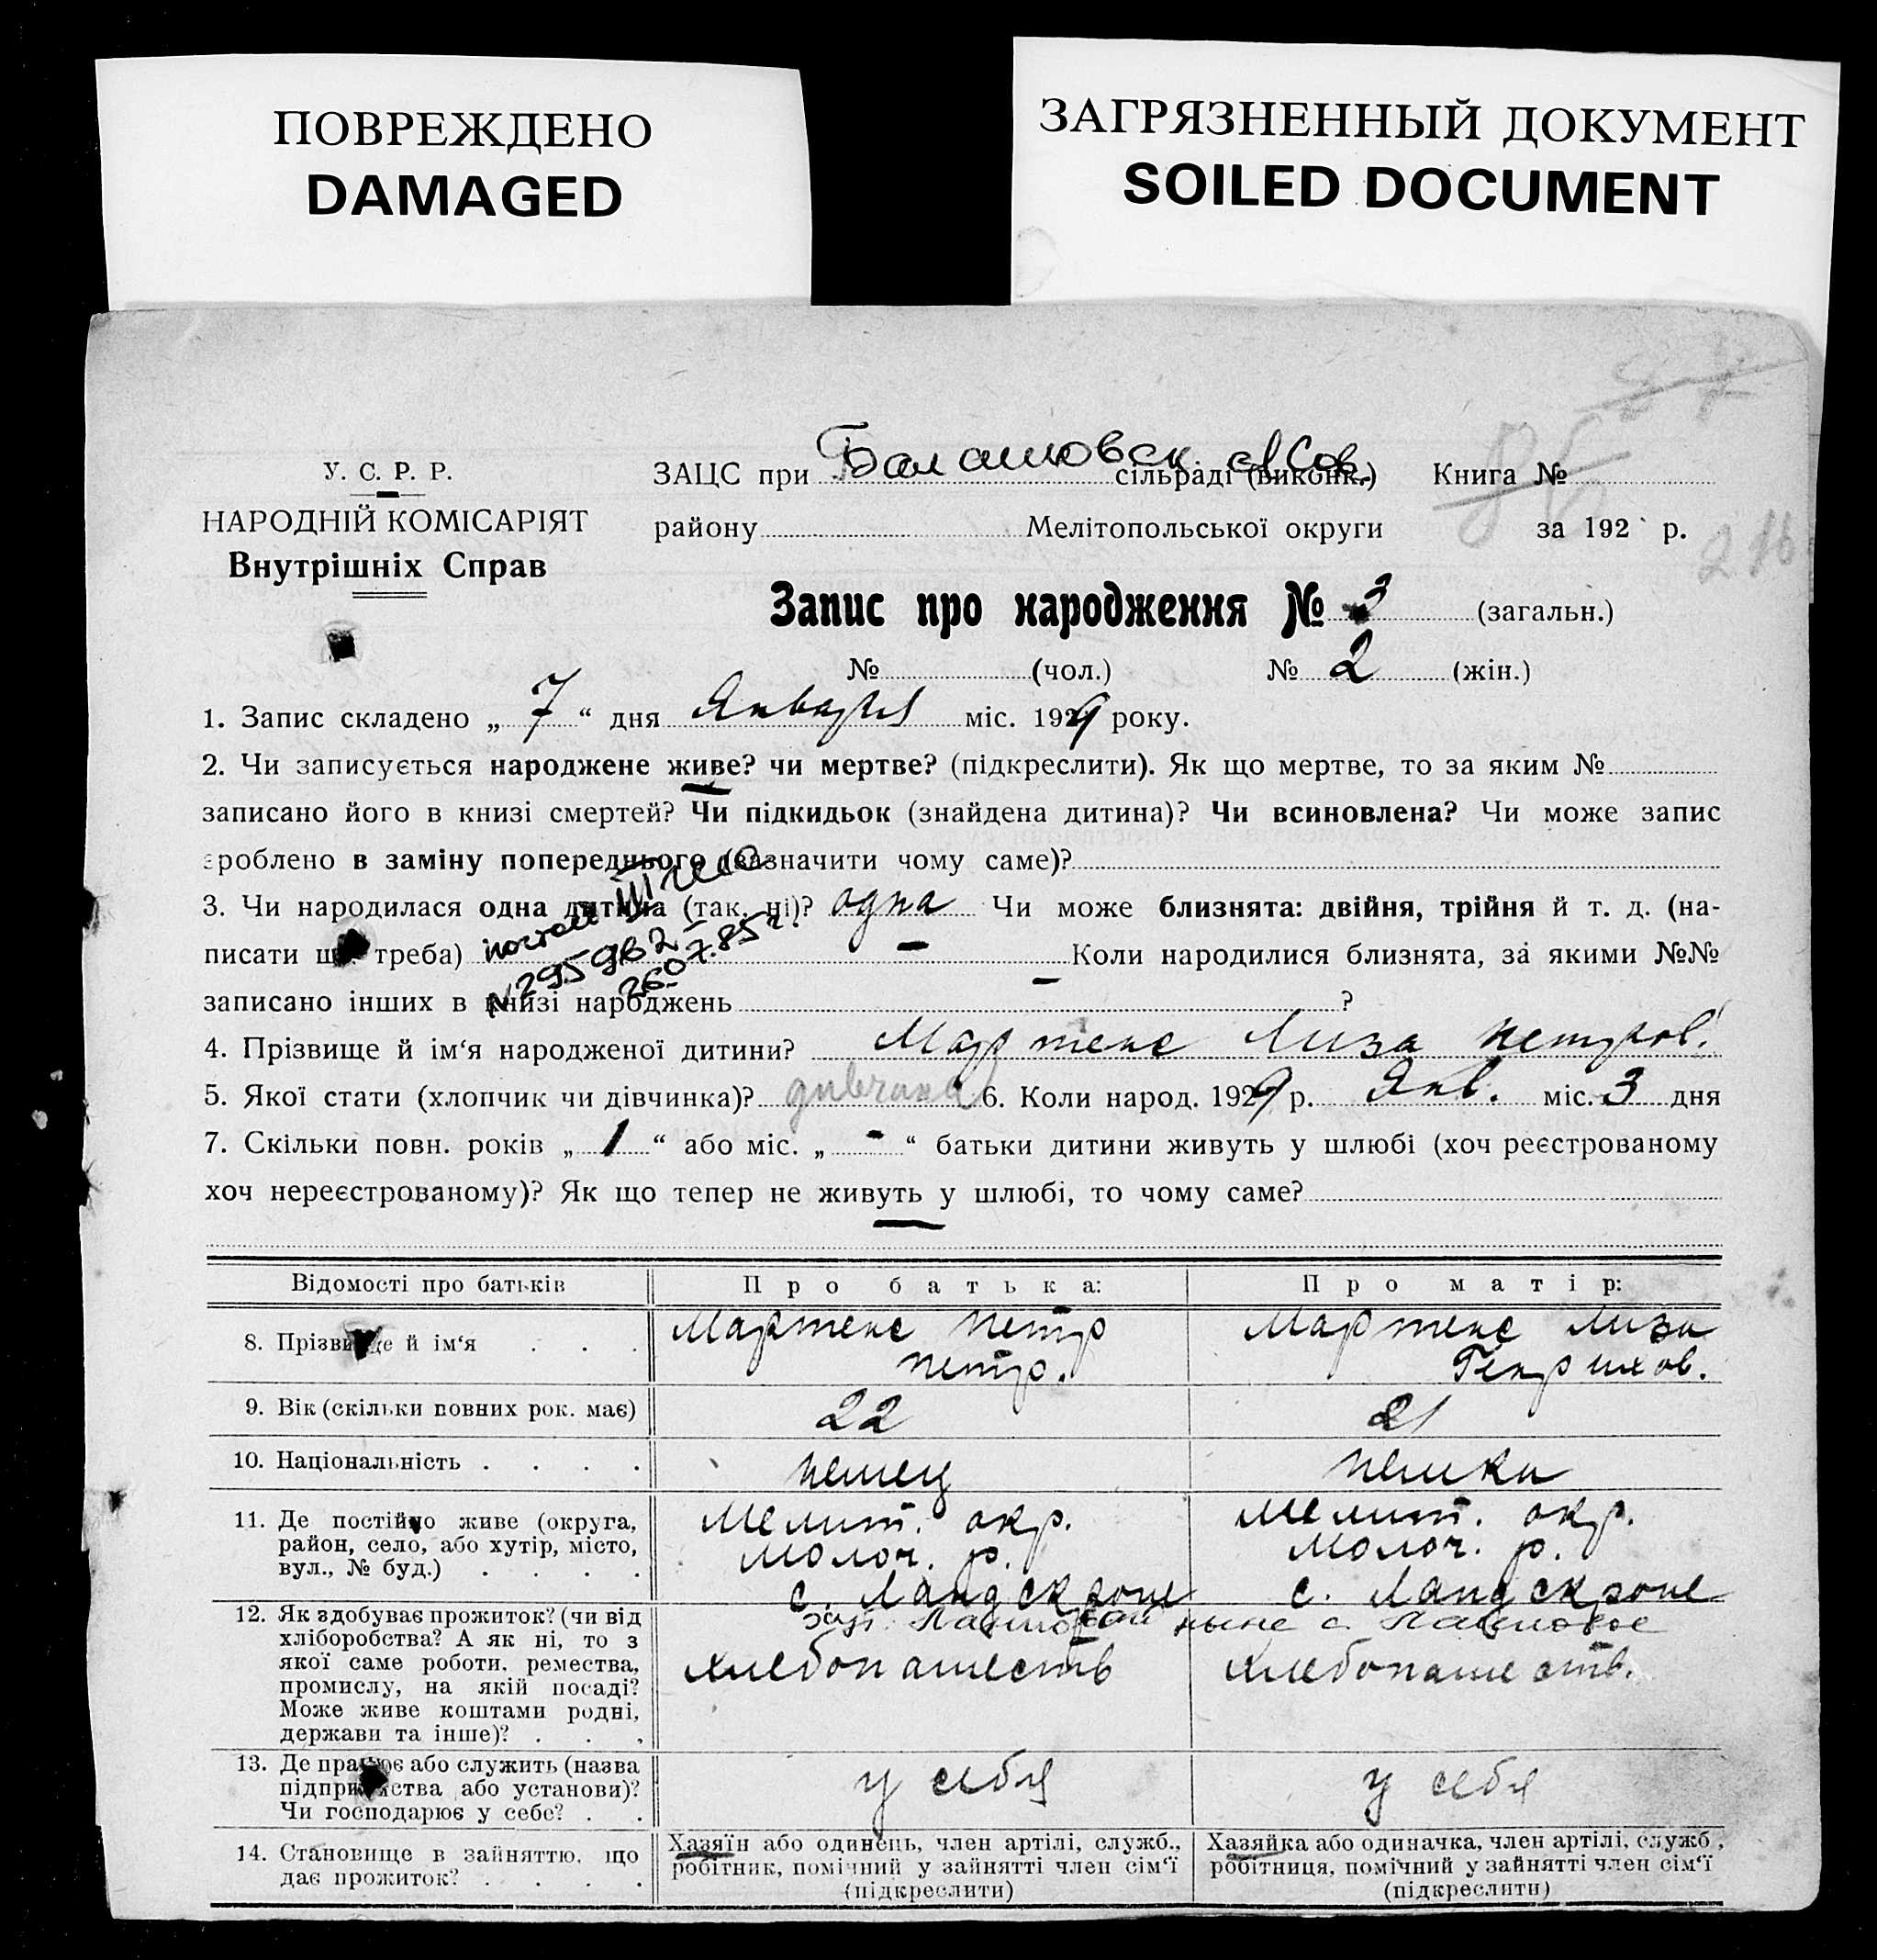 ПОВРЕЖДЕНО
DAMAGED
ЗАГРЯЗНЕННЫЙ ДОКУМЕНТ
SOILED DOCUMENT
У. С. Р. Р.
НАРОДНІЙ КОМІСАРІЯТ
Внутрішніх Справ
ЗАЦС при сільраді (виконк.) Книга №
району Мелітопольської округи за 192 р.
216
Запис про народження № 3 (загальн.)
№ (чол.) № 2 (жін.)
1. Запис складено „ 7 “ дня Января міс. 1929 року.
2. Чи записується народжене живе? чи мертве? (підкреслити). Як що мертве, то за яким №
записано його в книзі смертей? Чи підкидьок (знайдена дитина)? Чи всиновлена? Чи може запис
зроблено в заміну попереднього (зазначити чому саме)?
3. Чи народилася одна дитина (так, ні)? одна Чи може близнята: двійня, трійня й т. д. (на-
писати що треба) - Коли народилися близнята, за якими №№
N 295982
26.07.85 г.
записано інших в книзі народжень - ?
4. Прізвище й ім‘я народженої дитини? Мартенс Лиза Петров.
5. Якої стати (хлопчик чи дівчинка)? дивчина 6. Коли народ. 1929 р. Янв. міс. 3 дня
7. Скільки повн. років „ 1 “ або міс. „ - “ батьки дитини живуть у шлюбі (хоч реєстрованому
хоч нереєстрованому)? Як що тепер не живуть у шлюбі, то чому саме?
Відомості про батьків
Про батька:
Про матір:
8. Прізвище й ім‘я . . .
Мартенс Петр
Петр.
Мартенс Лиза
Генрихов.
9. Вік (скільки повних рок. має)
22
21
10. Національність . . . .
немец
немка
11. Де постійно живе (округа,
район, село, або хутір, місто,
вул., № буд.) . . . .
Мелит. окр.
Молоч. р.
с. Ландскроне
Мелит. окр.
Молоч. р.
с. Ландскроне
ныне с.
12. Як здобуває прожиток? (чи від
хліборобства? А як ні, то з
якої саме роботи, ремества,
промислу, на якій посаді?
Може живе коштами родні,
держави та інше)? . . .
хлебопашеств
хлебопашеств.
13. Де працює або служить (назва
підприємства або установи)?
Чи господарює у себе? . .
у себя
у себя
14. Становище в зайняттю, що
дає прожиток? . . . .
Хазяїн або одинець, член артілі, служб.,
робітник, помічний у зайнятті член сім‘ї
(підкреслити)
Хазяйка або одиначка, член артілі, служб.,
робітниця, помічний у зайнятті член сім‘ї
(підкреслити)